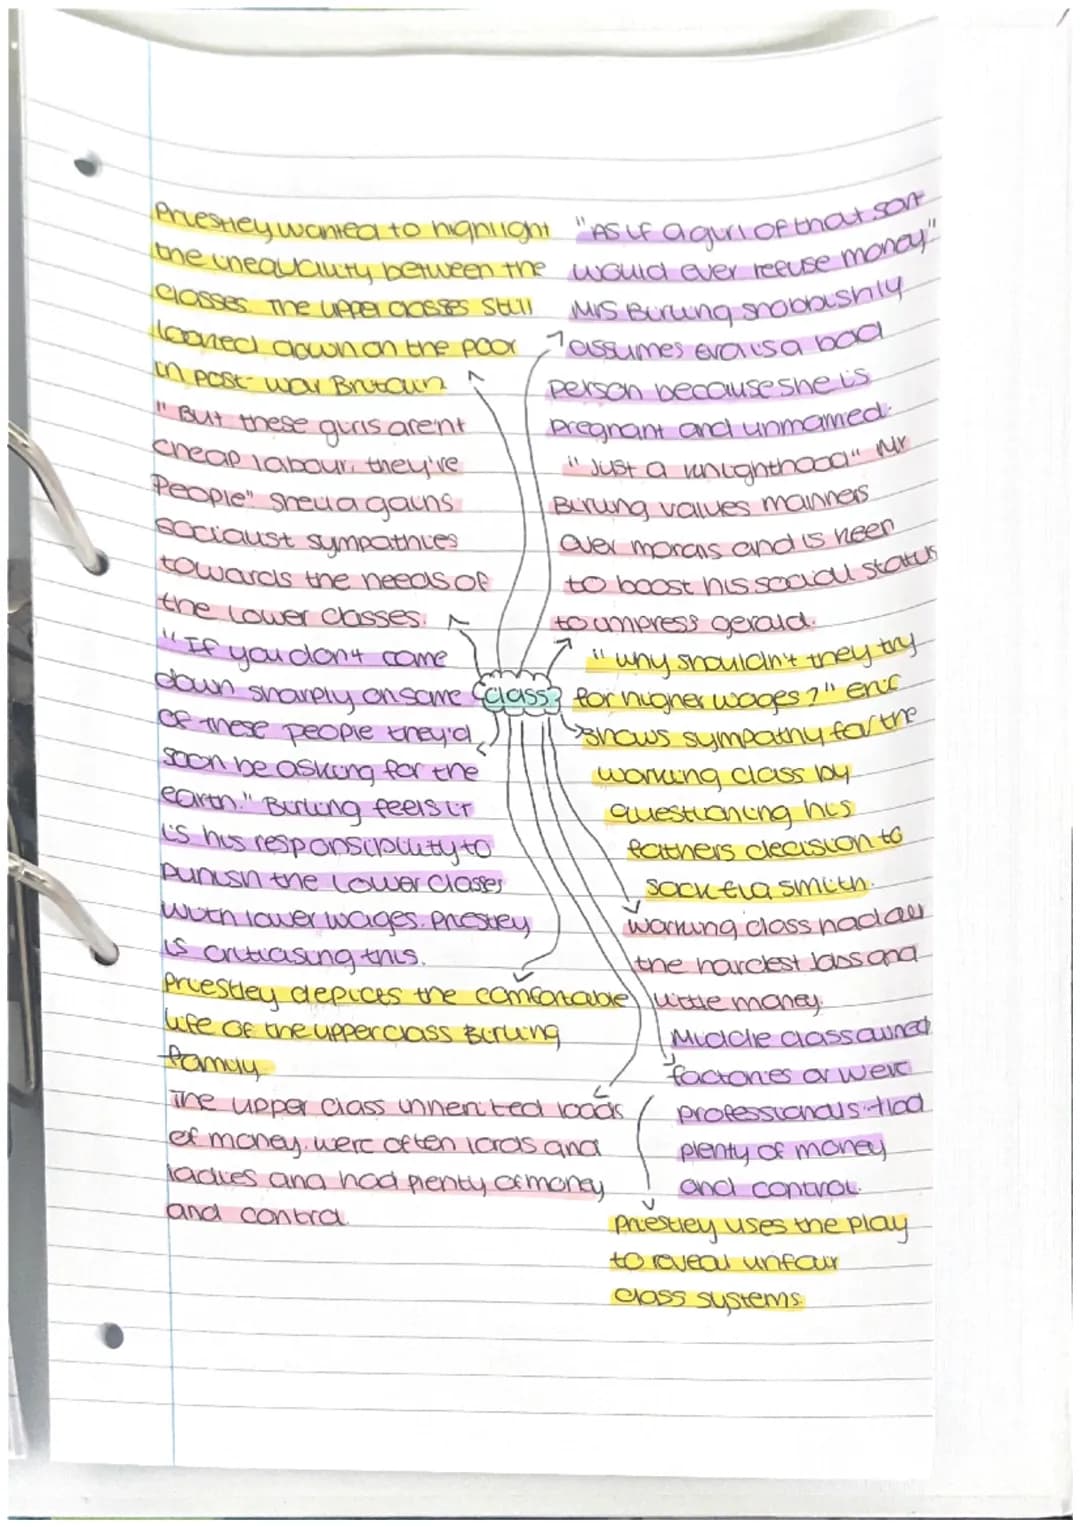 Priestley wanted to highlight
the inequality between the
classes. The upper classes still
looked down on the poor
in post-war Britain
"But these girls aren't
cheap labour, they're
People" Sheila gains
socialist sympathies
towards the needs of
the lower classes.
"If you don't come
down sharply on some
of these people they'd
soon be asking for the
earth." Birling feels it
is his responsibility to
punish the lower classes
with lower wages. Priestley
is criticising this.
Priestley depicts the comfortable
life of the upper class Birling
family.
The upper class inherited loads
of money, were often lords and
ladies and had plenty of money
and control.
class
"As if a girl of that sort
would ever refuse money"
Mrs Birling snobbishly
assumes eva is a bad
person because she is
pregnant and unmarried.
"Just a knighthood" Mr
Birling values manners
over morals and is keen
to boost his social status
to impress gerald.
"why shouldn't they try
for higher wages?" Eric
shows sympathy for the
working class by
questioning his
fathers decision to
sack Eva smith.
working class had all
the hardest jobs and
little money.
Middle class owned
factories or were
professionals. Had
plenty of money
and control.
Priestley uses the play
to reveal unfair
class systems.